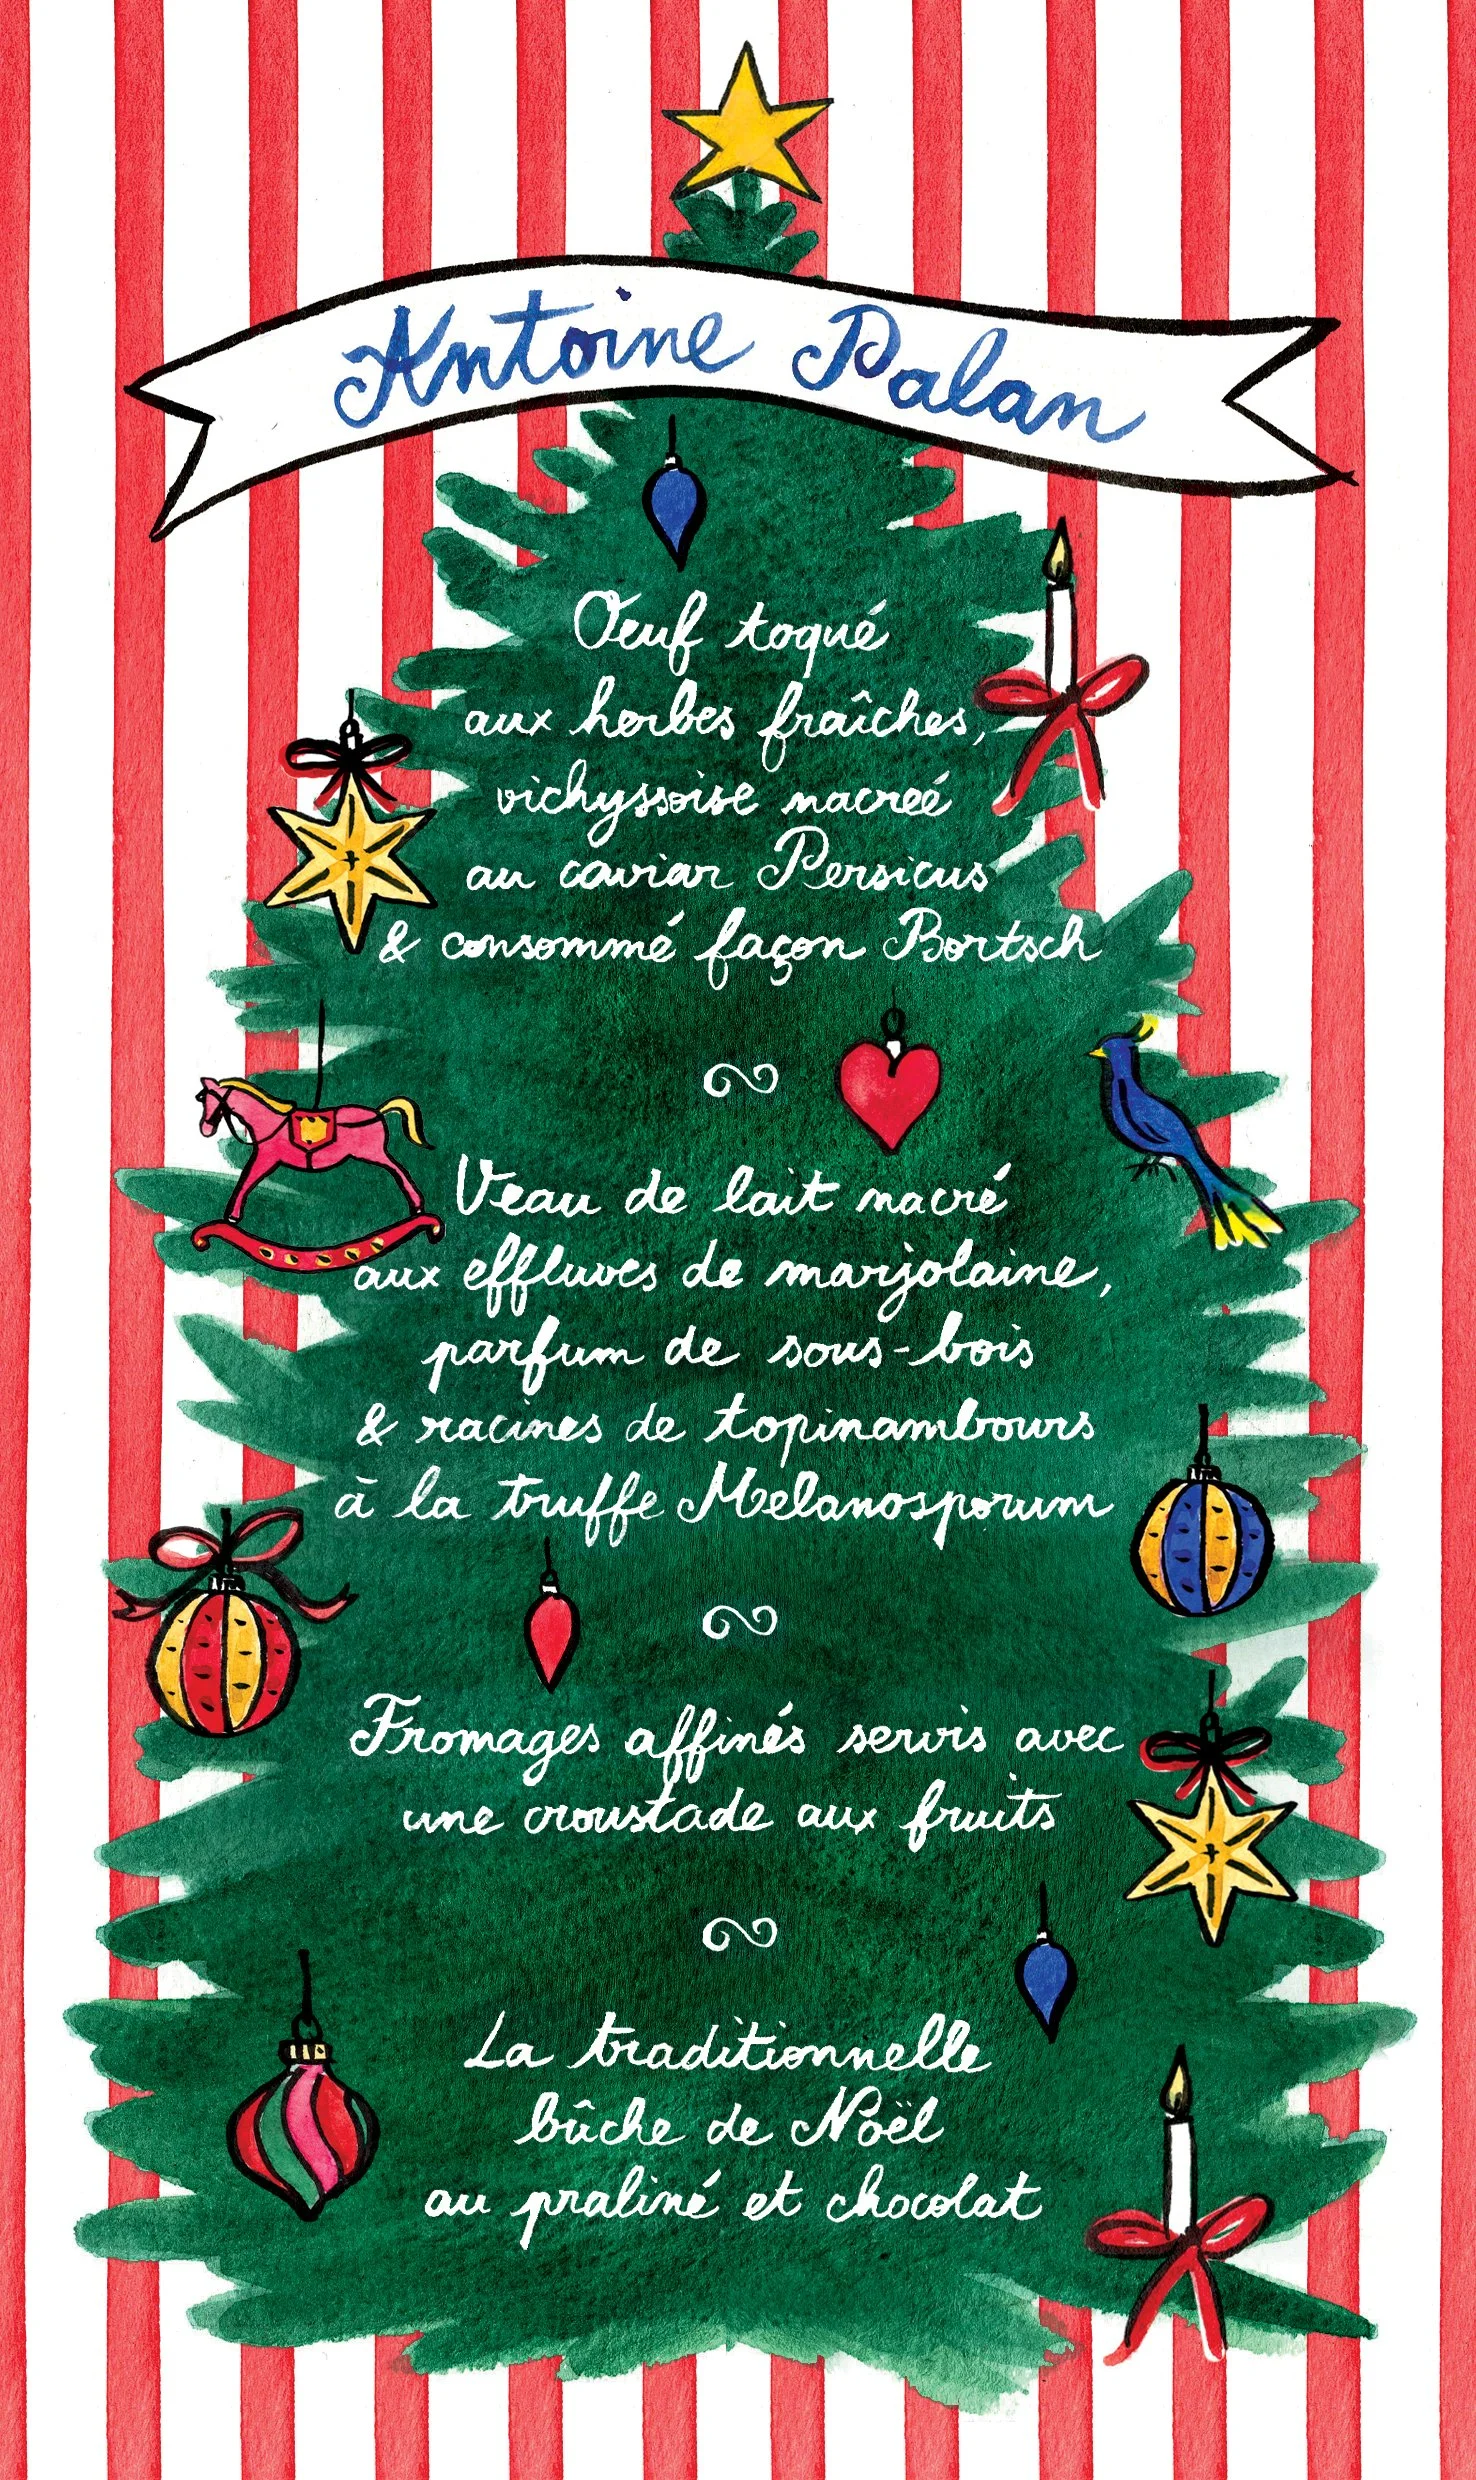 Antoine Palan
Œuf toqué
aux herbes fraîches,
vichyssoise nacreé
au caviar Persicus
& consommé façon Bortsch
Veau de lait nacré
aux effluves de marjolaine,
parfum de sous-bois
& racines de topinambours
à la truffe Melanosporum
Fromages affinés servis avec
une croustade aux fruits
La traditionnelle
bûche de Noël
au praliné et chocolat